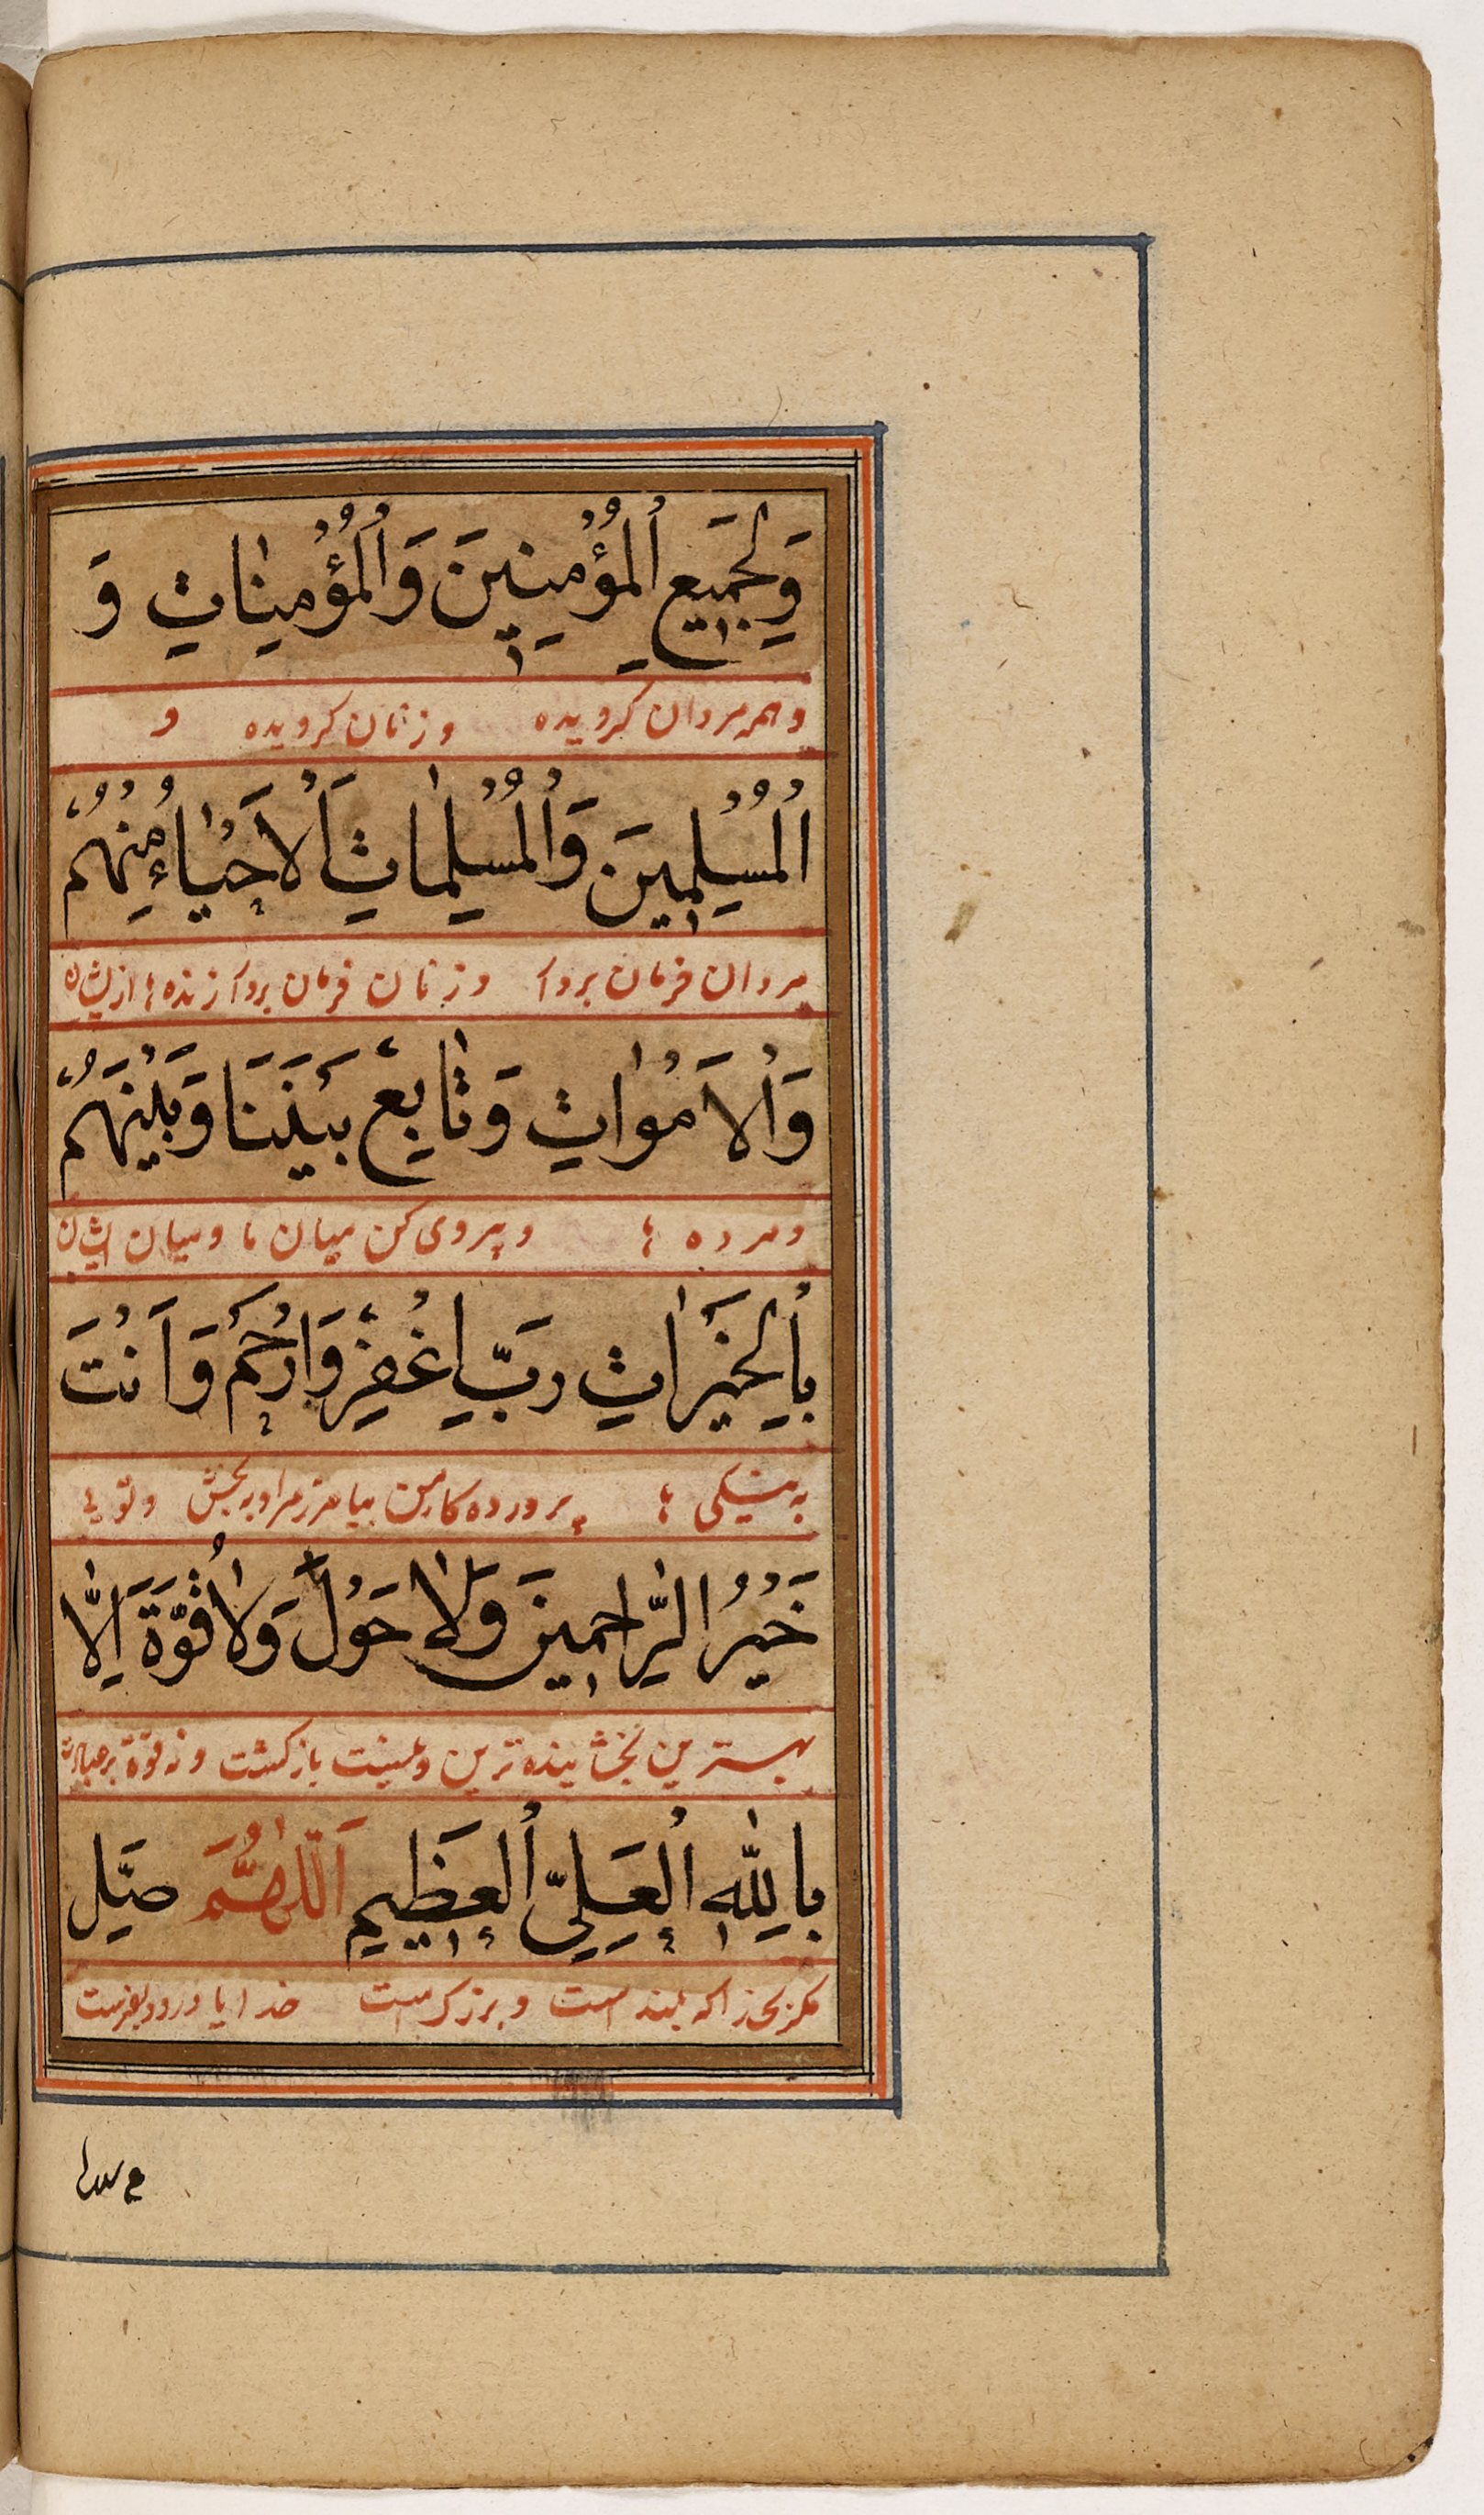 وَلِجَمِيعِ الْمُؤْمِنِينَ وَالْمُؤْمِنَاتِ وَ
و همه مردان کرویده و زنان کرویده و
الْمُسْلِمِينَ وَالْمُسْلِمَاتِ اَلْاَحْيَاءِ مِنْهُمْ
مردان فرمان بردار و زنان فرمان بردار زنده ها از ایشان
وَالْاَمْوَاتِ وَتَابِعْ بَيْنَنَا وَبَيْنَهُمْ
و مرده ها و پیروی کن میان ما و میان ایشان
بِالْخَيْرَاتِ رَبِّ اغْفِرْ وَارْحَمْ وَاَنْتَ
به نیکی ها پرورده کار من بیامرز مرا و ببخش و توئی
خَيْرُ الرَّاحِمِينَ وَلَا حَوْلَ وَلَا قُوَّةَ اِلَّا
بهترین بخشاینده ترین و نیست بازگشت و نه قوة بر
بِاللّٰهِ الْعَلِيِّ الْعَظِيمِ اَللّٰهُمَّ صَلِّ
مکر بخدا که بلند است و بزرک است خدایا درود بفرست